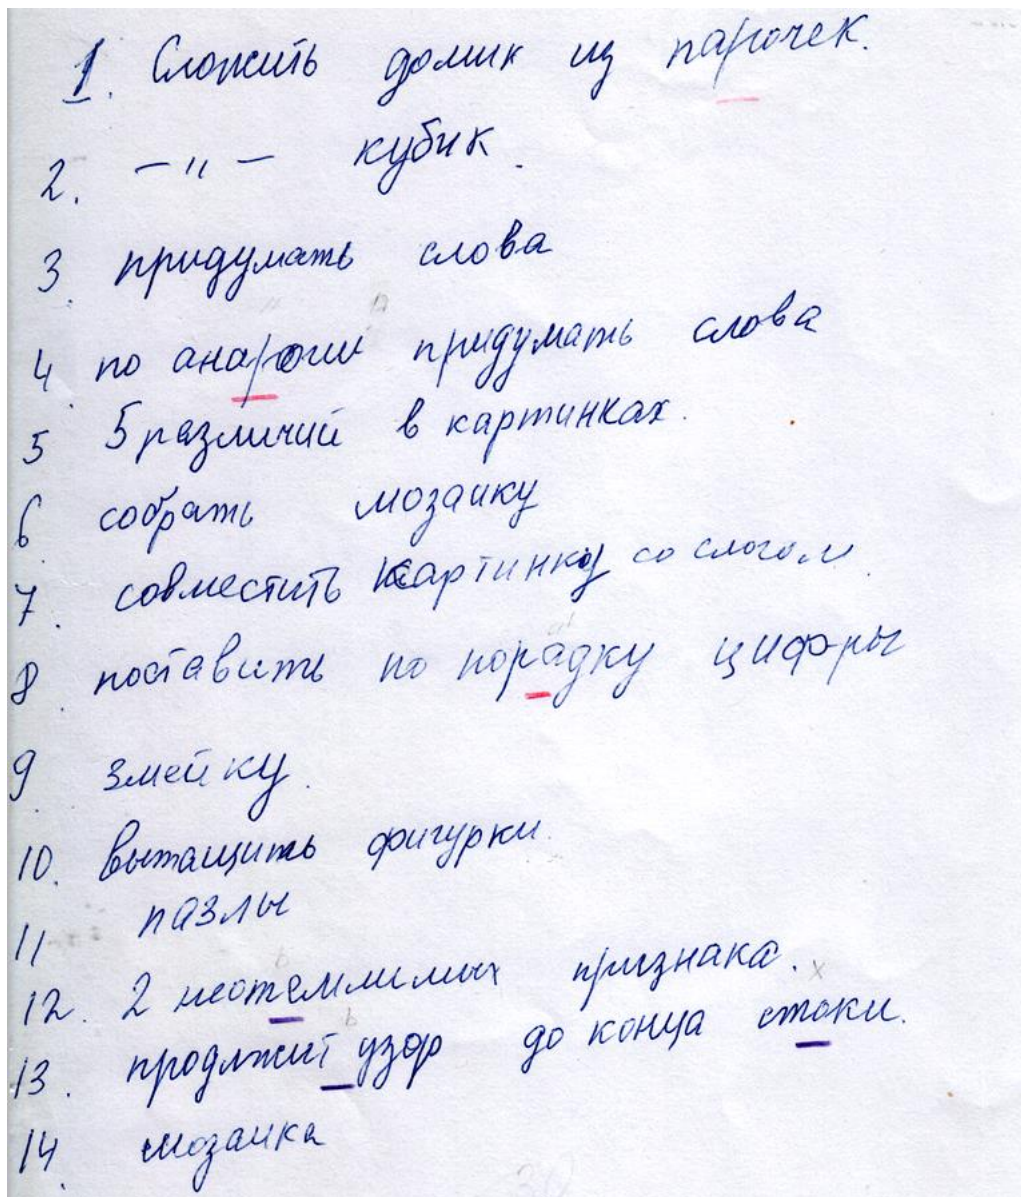 1. Сложить домик из парочек.
2. –"– кубик.
3. придумать слова
4. по анарогии придумать слова
5 5 различий в картинках.
6. собрать мозаику
7. совместить картинку со слогом.
8. поставить по порадку цифры
9. змейку.
10. вытащить фигурки.
11 пазлы
12. 2 неотемлимых признака.
13. продлжит узор до конца стоки.
14. мозаика